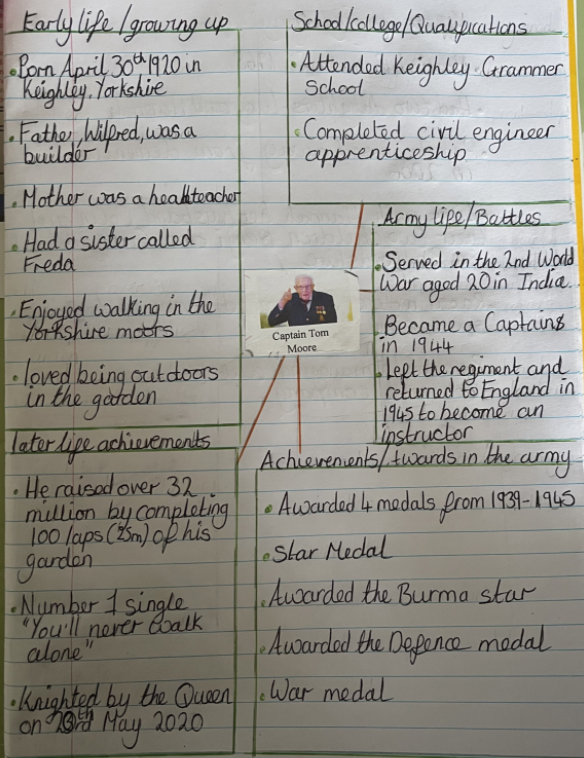 Early life/growing up
• Born April 30th 1920 in
Keighley, Yorkshire
• Father, Wilfred, was a
builder
• Mother was a headteacher
• Had a sister called
Freda
• Enjoyed walking in the
Yorkshire moors
• loved being outdoors
in the garden
School/college/Qualifications
• Attended Keighley Grammer
School
• Completed civil engineer
apprenticeship
Army life/Battles
• Served in the 2nd World
War aged 20 in India.
• Became a Captains
in 1944
• Left the regiment and
returned to England in
1945 to become an
instructor
Captain Tom
Moore
later life achievements
• He raised over 32
million by completing
100 laps (25m) of his
garden
• Number 1 single
"You'll never walk
alone"
• Knighted by the Queen
on May 2020
Achievements/Awards in the army
• Awarded 4 medals from 1939-1945
• Star Medal
• Awarded the Burma star
• Awarded the Defence medal
• War medal